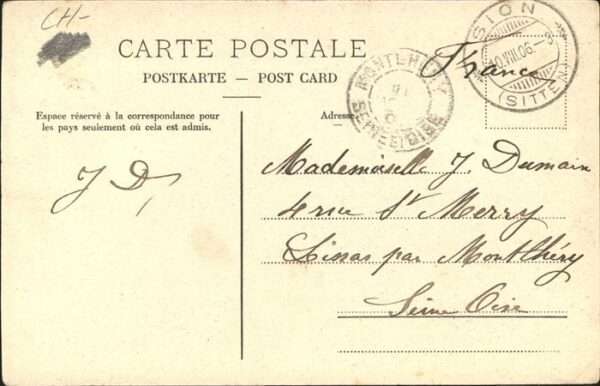 CH-
CARTE POSTALE
POSTKARTE — POST CARD
Espace réservé à la correspondance pour
les pays seulement où cela est admis.
Adresse
SION
10.VIII.06.—8
(SITTEN)
France
MONTLHERY
SEINE-ET-OISE
J D,
Mademoiselle J. Dumain
4 rue St Merry
Linas par Montlhéry
Seine Oise